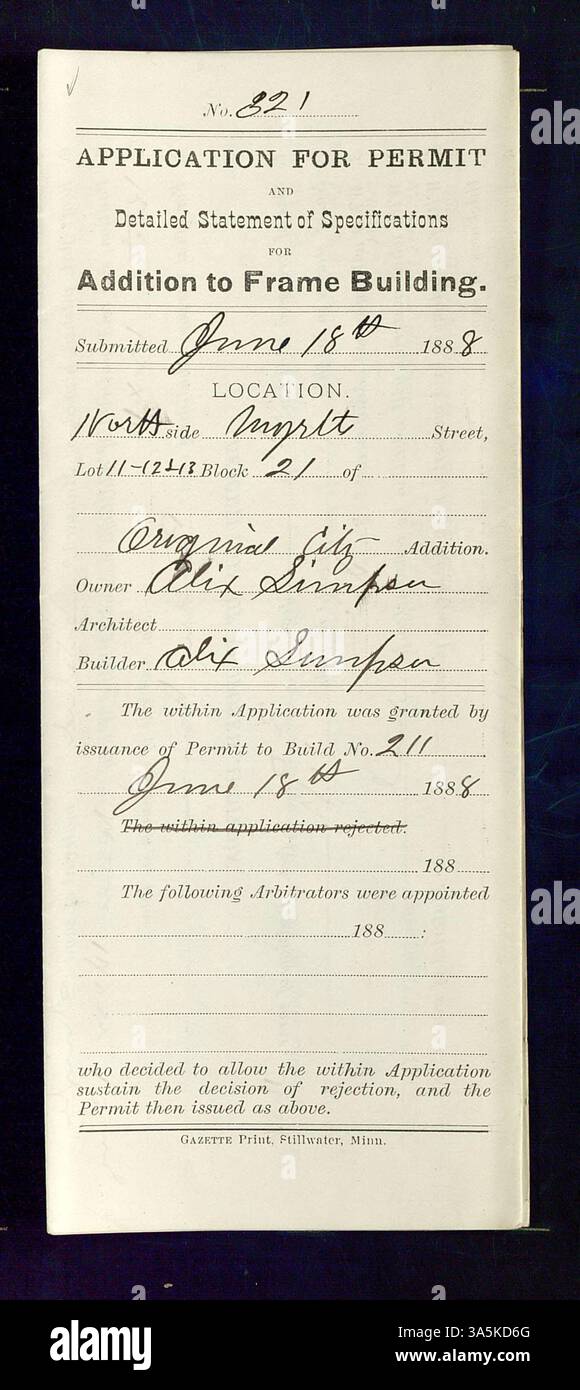 No. 321
APPLICATION FOR PERMIT
AND
Detailed Statement of Specifications
FOR
Addition to Frame Building.
Submitted June 18th 1888
LOCATION.
North side Myrlt Street,
Lot 11-12&13 Block 21 of
Original City Addition.
Owner Alix Simpson
Architect
Builder Alix Simpson
The within Application was granted by
issuance of Permit to Build No. 211
June 18th 1888
The within application rejected.
188
The following Arbitrators were appointed
188 :
who decided to allow the within Application
sustain the decision of rejection, and the
Permit then issued as above.
GAZETTE Print, Stillwater, Minn.
alamy
Image ID: 3A5KD6G
www.alamy.com